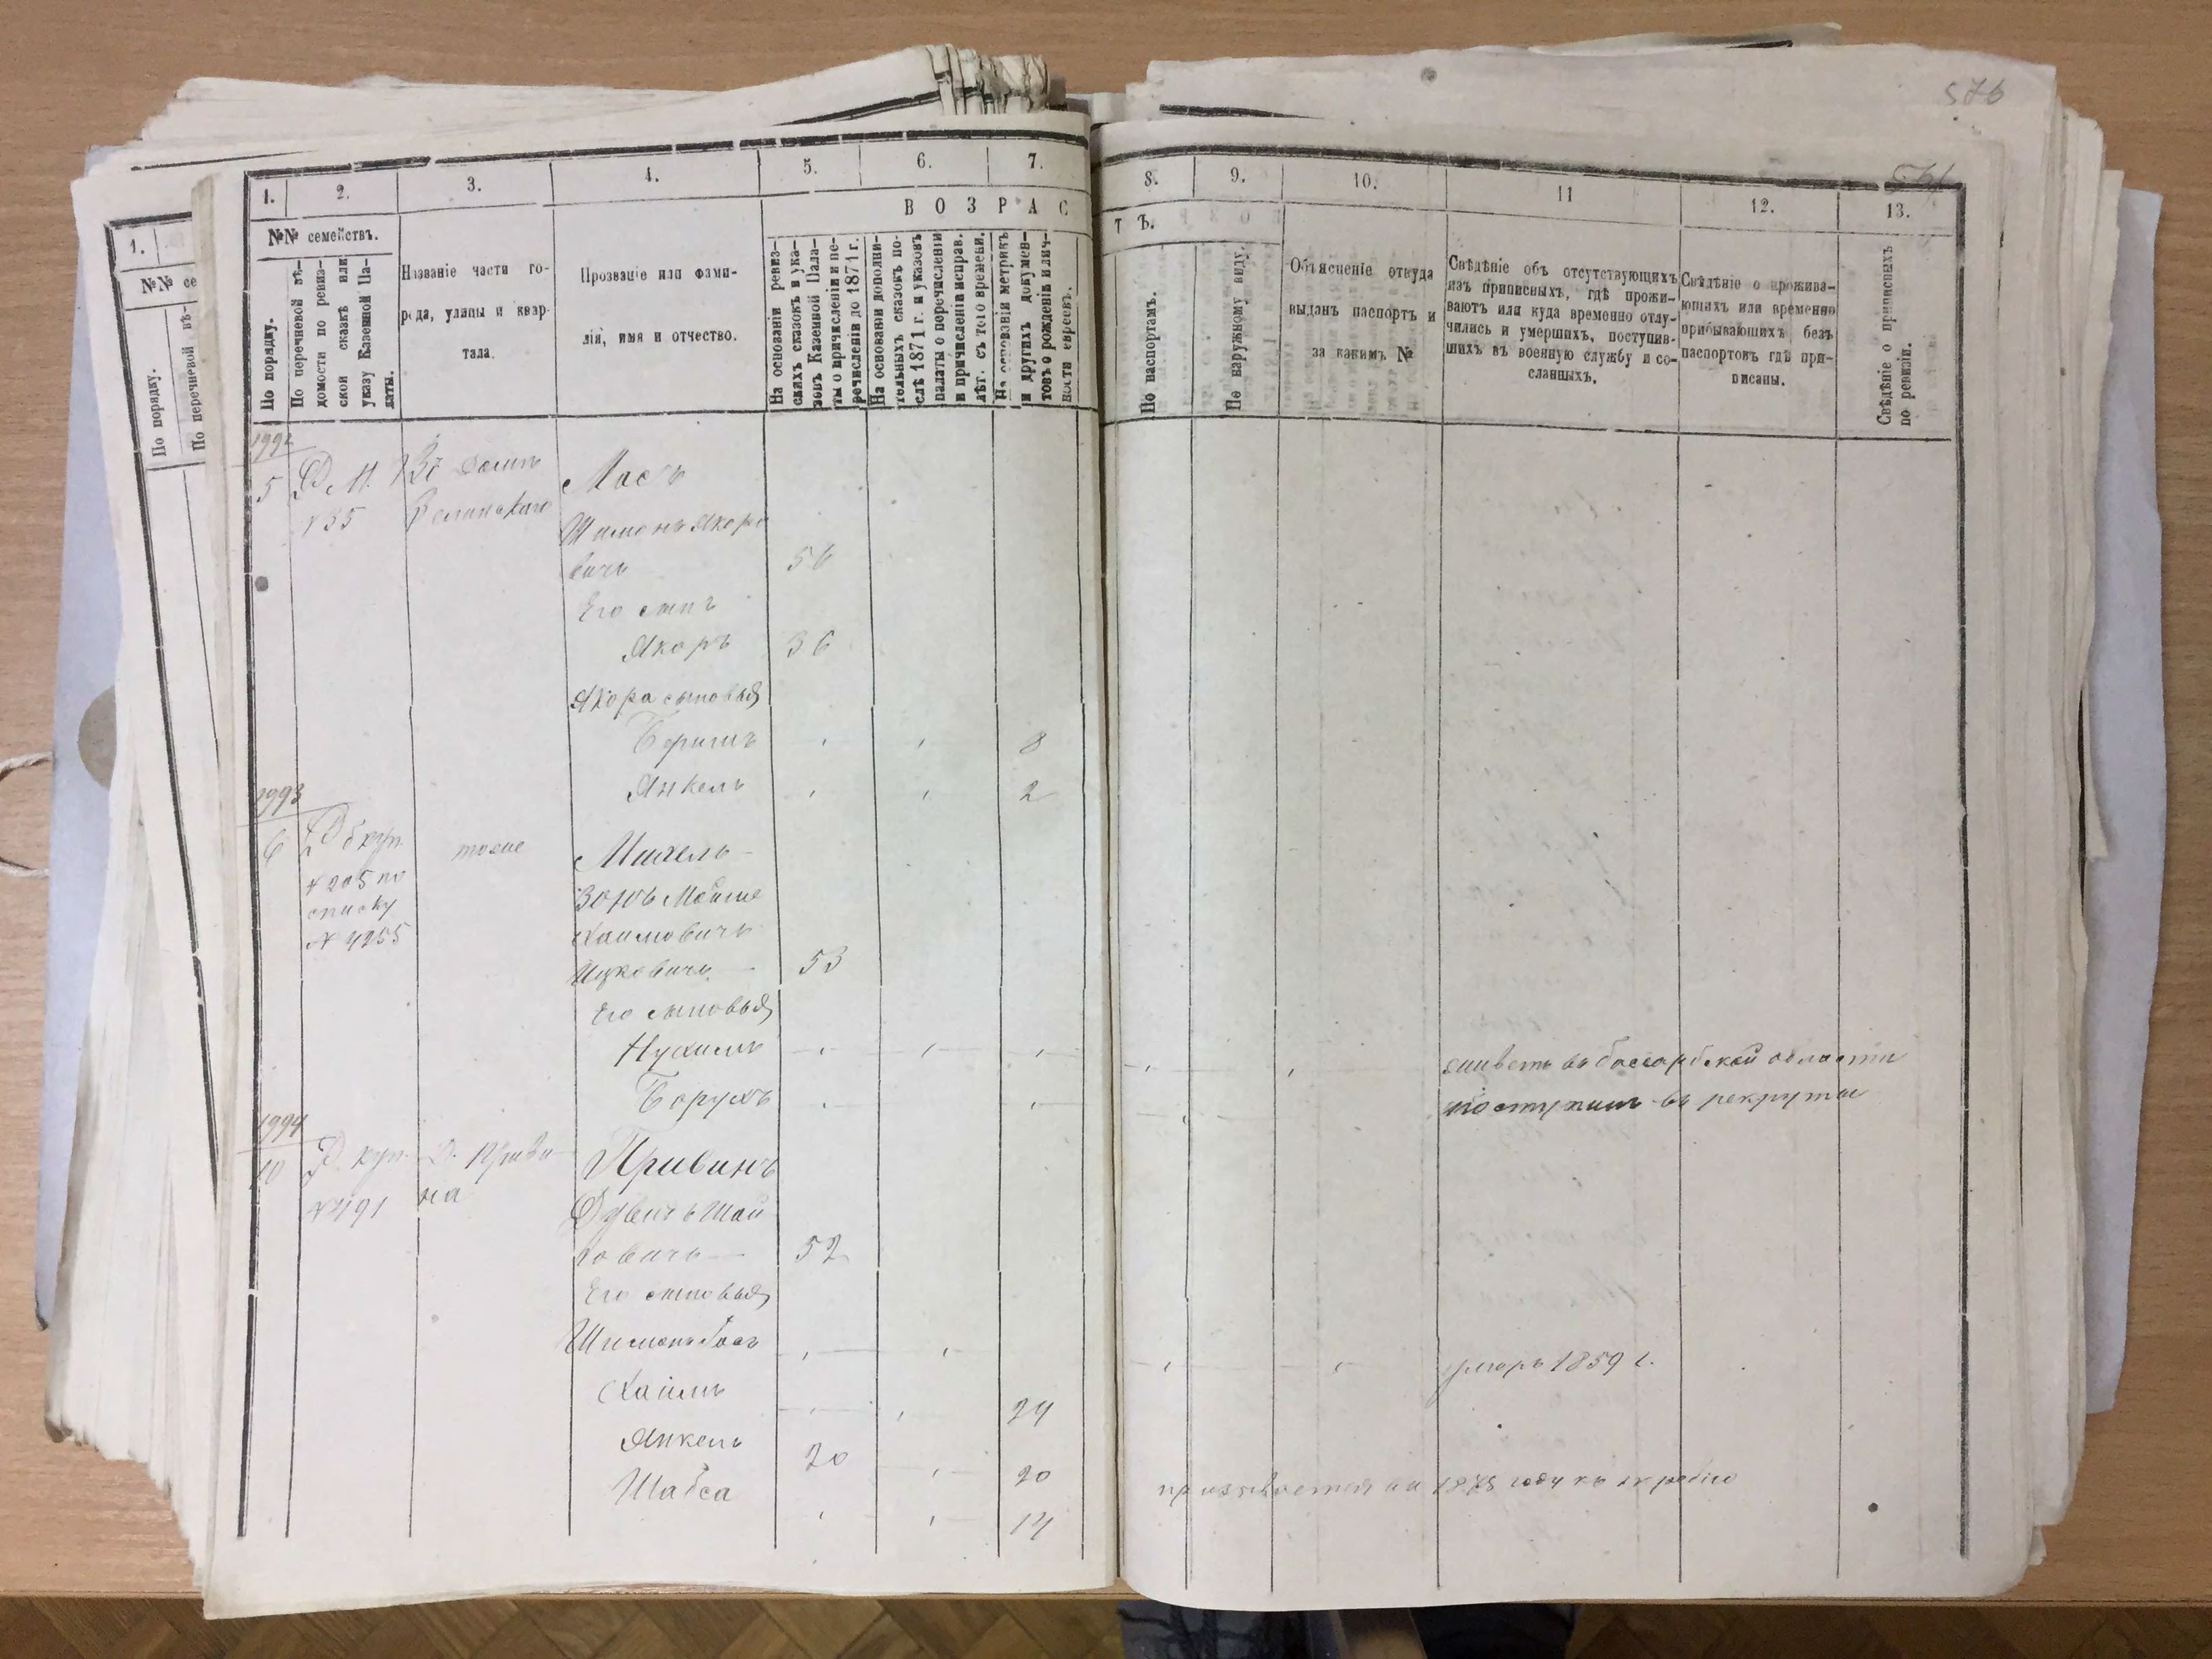 576
1.
№№ се
По порядку.
По перечневой вѣ-
1. 2. 3. 4. 5. 6. 7.
№№ семействъ.
По порядку.
По перечневой вѣ-
домости по ревиз-
ской сказкѣ или
указу Казенной Па-
латы.
Названіе части го-
рода, улицы и квар-
тала.
Прозваніе или фами-
лія, имя и отчество.
ВОЗРАС
На основаніи ревиз-
скихъ сказокъ и ука-
зовъ Казенной Пала-
ты о причисленіи и пе-
речисленіи до 1871 г.
На основаніи дополни-
тельныхъ сказокъ по-
слѣ 1871 г. и указовъ
палаты о перечисленіи
и причисленіи исправ.
лѣт. съ того времени.
На основаніи метрикъ
и другихъ докумен-
товъ о рожденіи и лич-
ности евреевъ.
8. 9. 10. 11 12. 13.
ТЪ.
По паспортамъ.
По наружному виду.
Объясненіе откуда
выданъ паспортъ и
за какимъ №
Свѣдѣніе объ отсутствующихъ
изъ приписныхъ, гдѣ прожи-
ваютъ или куда временно отлу-
чились и умершихъ, поступив-
шихъ въ военную службу и со-
сланныхъ.
Свѣдѣніе о прожива-
ющихъ или временно
прибывающихъ безъ
паспортовъ гдѣ при-
писаны.
Свѣдѣніе о приписныхъ
по ревизіи.
1992
5
№35
Масъ
вичъ 56
Его сынъ
Якоръ 36
Якора сыновья
Беришъ 8
Янкель 2
1993
6 тоже
№ 205 по
списку
№ 4255
Михель-
зонъ Мойше
Хаимовичъ
Ицковичъ 53
Его сыновья
Нухимъ живетъ въ бессарбской области
Борухъ поступилъ въ рекруты
1994
10 куп. Д. Приви
№491 на
Привинъ
Дувидъ Шай
ковичъ 52
Его сыновья
умеръ 1859 г.
Хаимъ 24
Янкель 20 20
Шабса 14
призывается въ 1875 году къ жребію